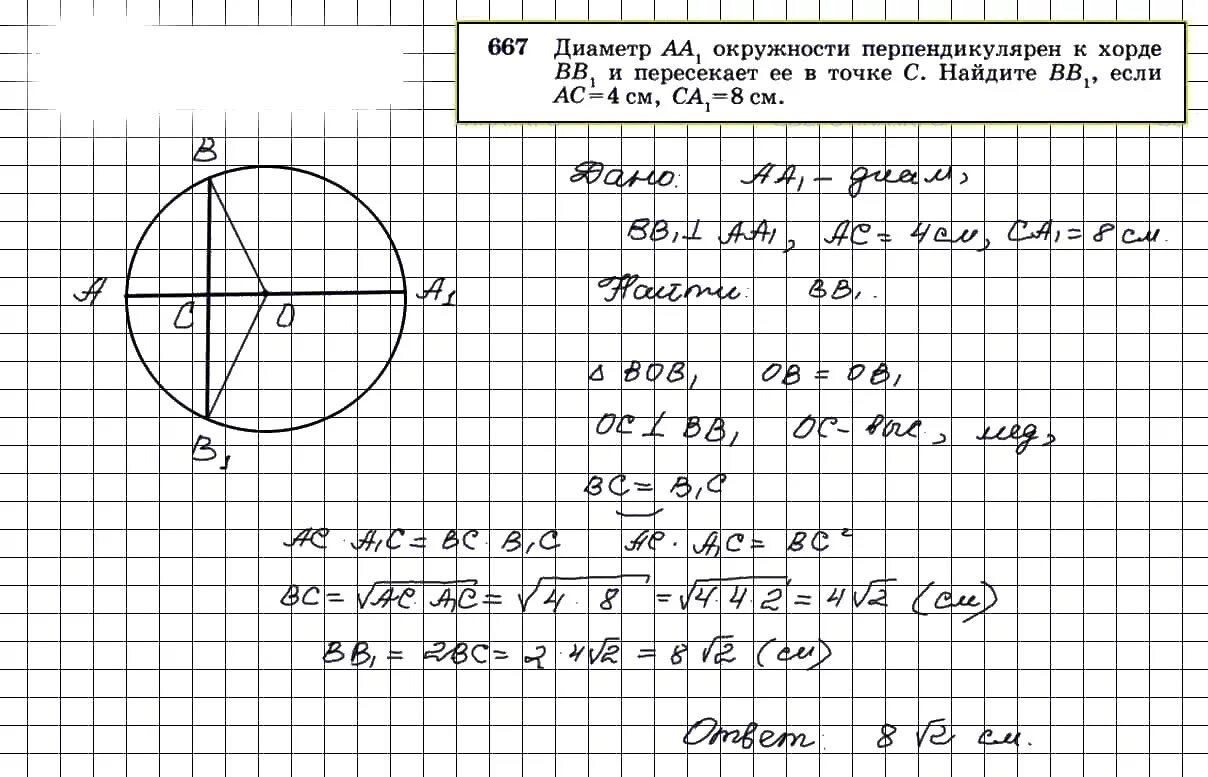 667 Диаметр AA₁ окружности перпендикулярен к хорде
BB₁ и пересекает ее в точке C. Найдите BB₁, если
AC=4 см, CA₁=8 см.
B
A
C
O
A₁
B₁
Дано: AA₁ – диам,
BB₁ ⊥ AA₁, AC = 4 см, CA₁ = 8 см.
Найти: BB₁.
△ BOB₁ OB = OB₁
OC ⊥ BB₁ OC – выс, мед,
BC = B₁C
AC · A₁C = BC · B₁C AC · A₁C = BC²
BC = √AC · A₁C = √4 · 8 = √4 · 4 · 2 = 4√2 (см)
BB₁ = 2BC = 2 · 4√2 = 8√2 (см)
Ответ: 8√2 см.